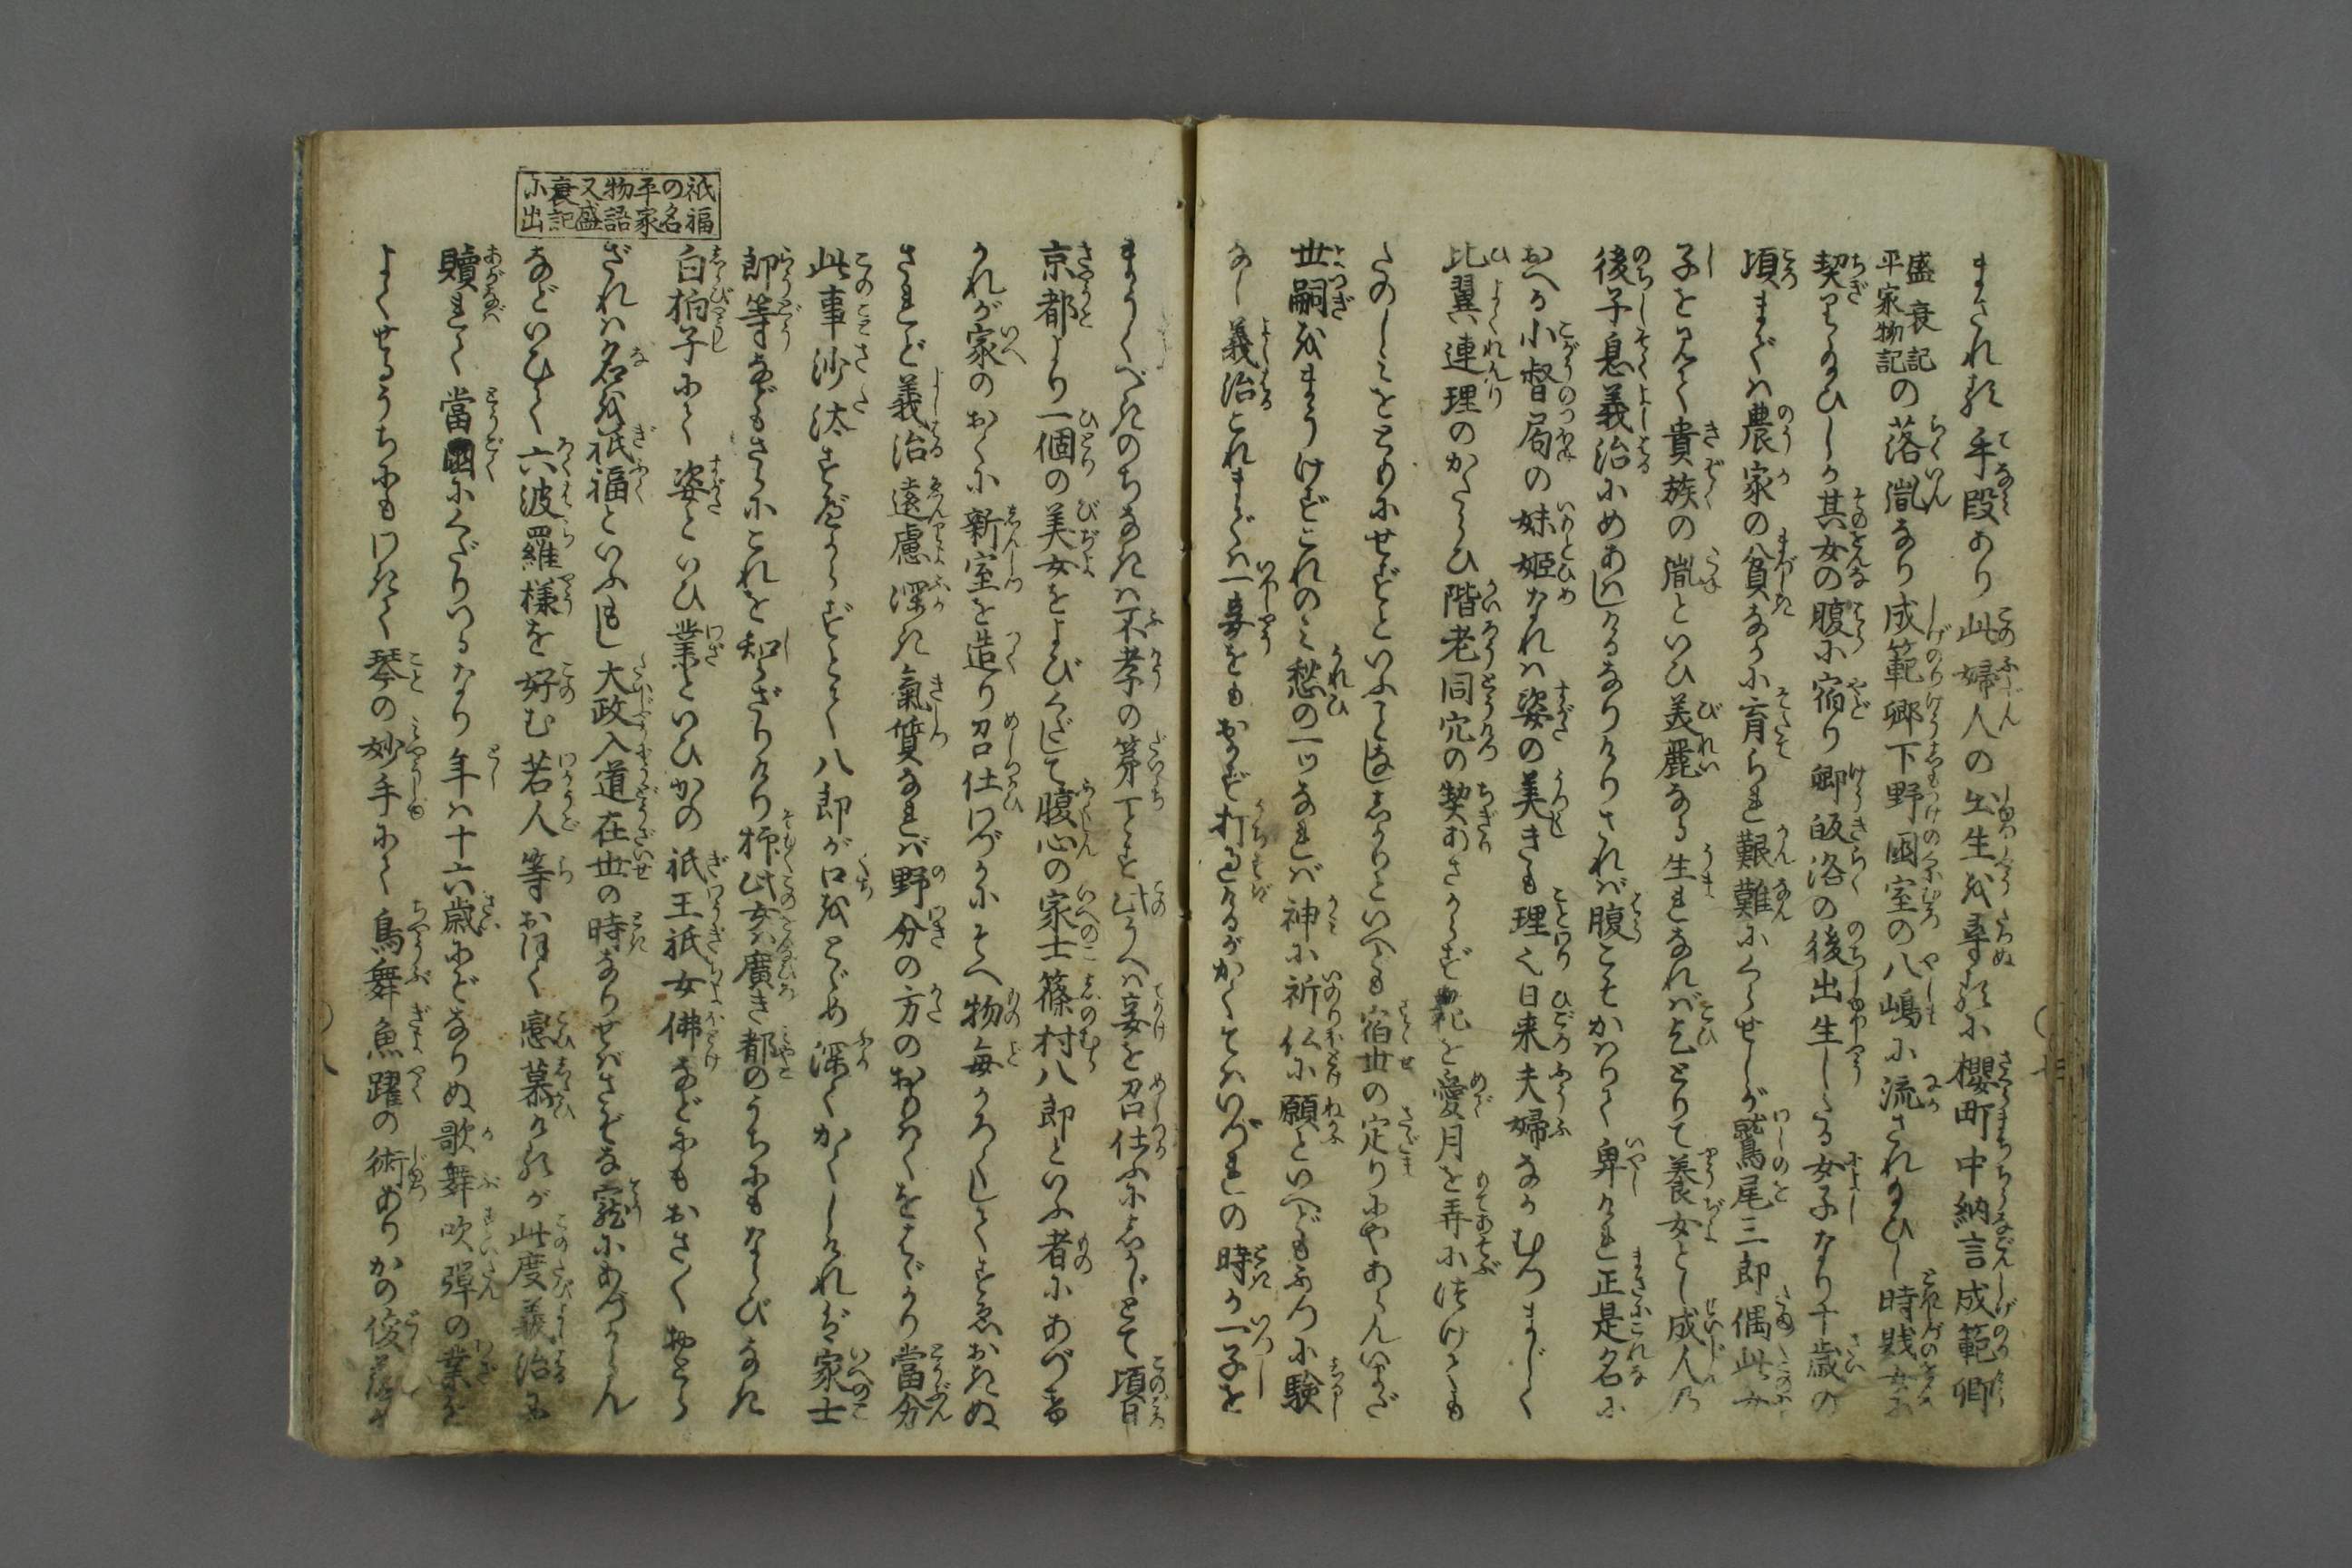 まされる手段あり此婦人の出生を尋るに櫻町中納言成範卿
盛衰記
平家物記
の落胤なり成範卿下野国室の八嶋に流されたまひし時賎女に
契りたまひしか其女の腹に宿り卿皈洛の後出生したる女子なり十歳の
頃までは農家の貧なかに育られ艱難にくらせしが鷲尾三郎偶此女
子を見て貴族の胤といひ美麗なる生れなれば乞とりて養女とし成人乃
後子息義治にめあはしけるなりけりされば腹こそかはりて卑けれ正是名に
おへる小督局の妹姫なれは姿の美きも理也日来夫婦なかむつまじく
比翼連理のかたらひ階老同穴の契あさからず花を愛月を弄に付けても
たのしみをともにせずといふことなししかりといへども宿世の定りにやあらんいまだ
世嗣をまうけずこれのみ愁の一ツなれば神に祈仏に願といへどもふつに験
なし義治これまでは一妾をもおかず打過けるがかくてはいづれの時か一子を
まうくべきのちなきは不孝の第一とす此うへは妾を召仕ふにしかじとて頃日
京都より一個の美女をよびくだして腹心の家士篠村八郎といふ者にあづけ
かれが家のおくに新室を造り召仕わづかにそへ物毎かろくしてすゑおきぬ
されど義治遠慮深き氣質なれば野分の方のおもはくをはゞかり當分
此事沙汰すべからずとて八郎が口をとゞめ深くかくしければ家士
郎等などもさらにこれを知らざりけり抑此女は廣き都のうちにもならびなき
白拍子にて姿といひ業といひかの祇王祇女佛などにもおさ〱おとら
ざれは名を祇福といふもし大政入道在世の時なりせばさぞな寵にあづからん
などいひて六波羅様を好む若人等おほく恋慕けるが此度義治に
贖れて當國にくだりつるなり年は十六歳にぞなりぬ歌舞吹弾の業を
よくせるうちにもわけて琴の妙手にて鳥舞魚躍の術ありかの
祇福
の名
平家
物語
又盛
衰記
に出